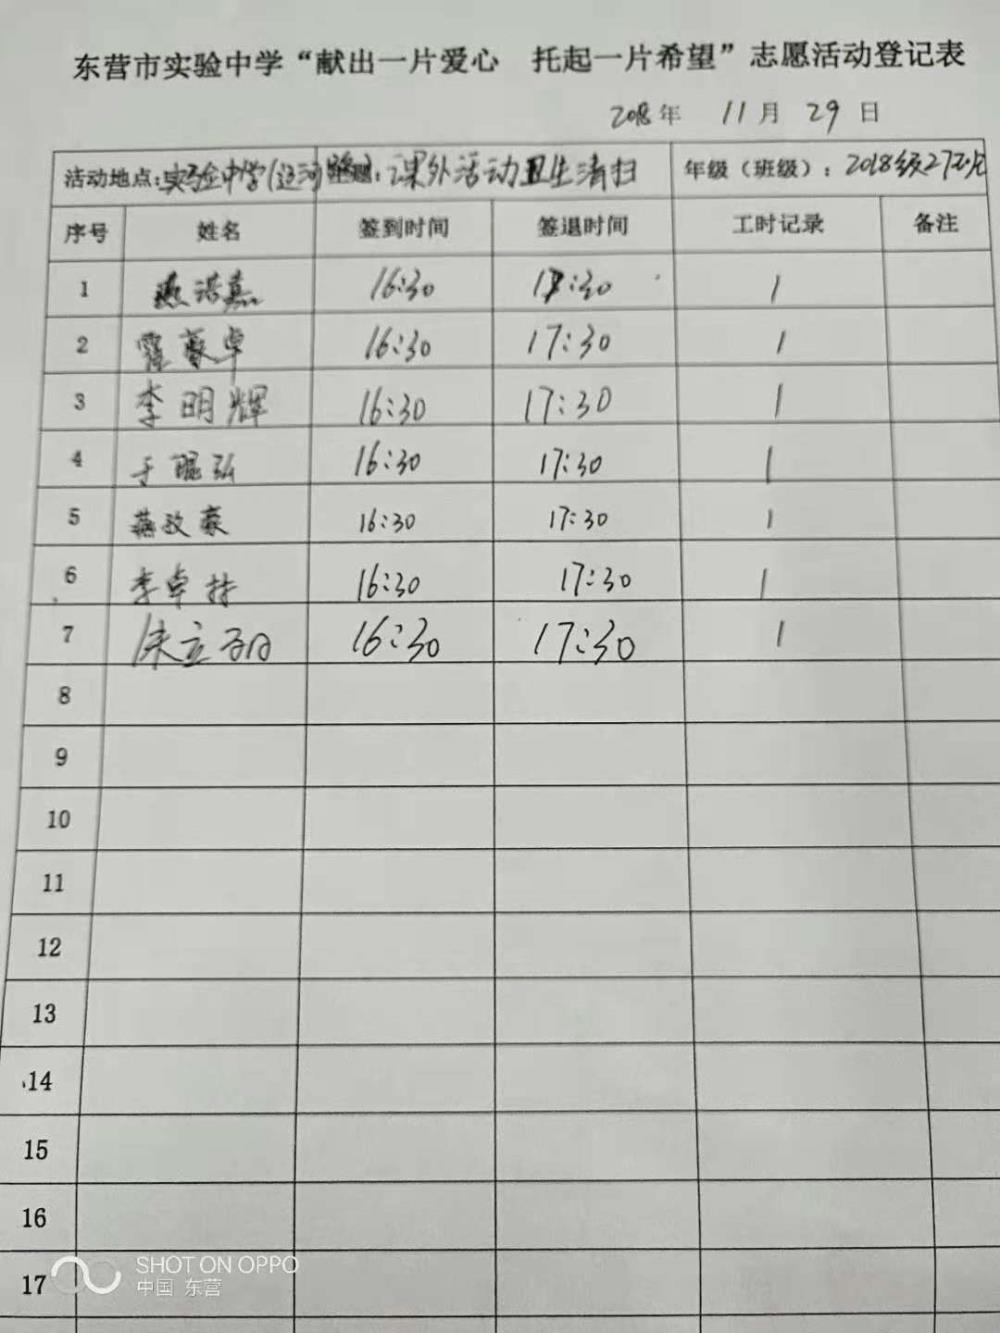 东营市实验中学“献出一片爱心 托起一片希望”志愿活动登记表
2018年 11月 29日
活动地点：实验中学(辽河 课外活动卫生清扫 年级（班级）：2018级27
序号 姓名 签到时间 签退时间 工时记录 备注
1 浩嘉 16:30 17:30 1
2 霍豪卓 16:30 17:30 1
3 李明辉 16:30 17:30 1
4 于琨弘 16:30 17:30 1
5 燕政豪 16:30 17:30 1
6 李卓 16:30 17:30 1
7 立 16:30 17:30 1
8
9
10
11
12
13
14
15
16
17
SHOT ON OPPO
中国 东营